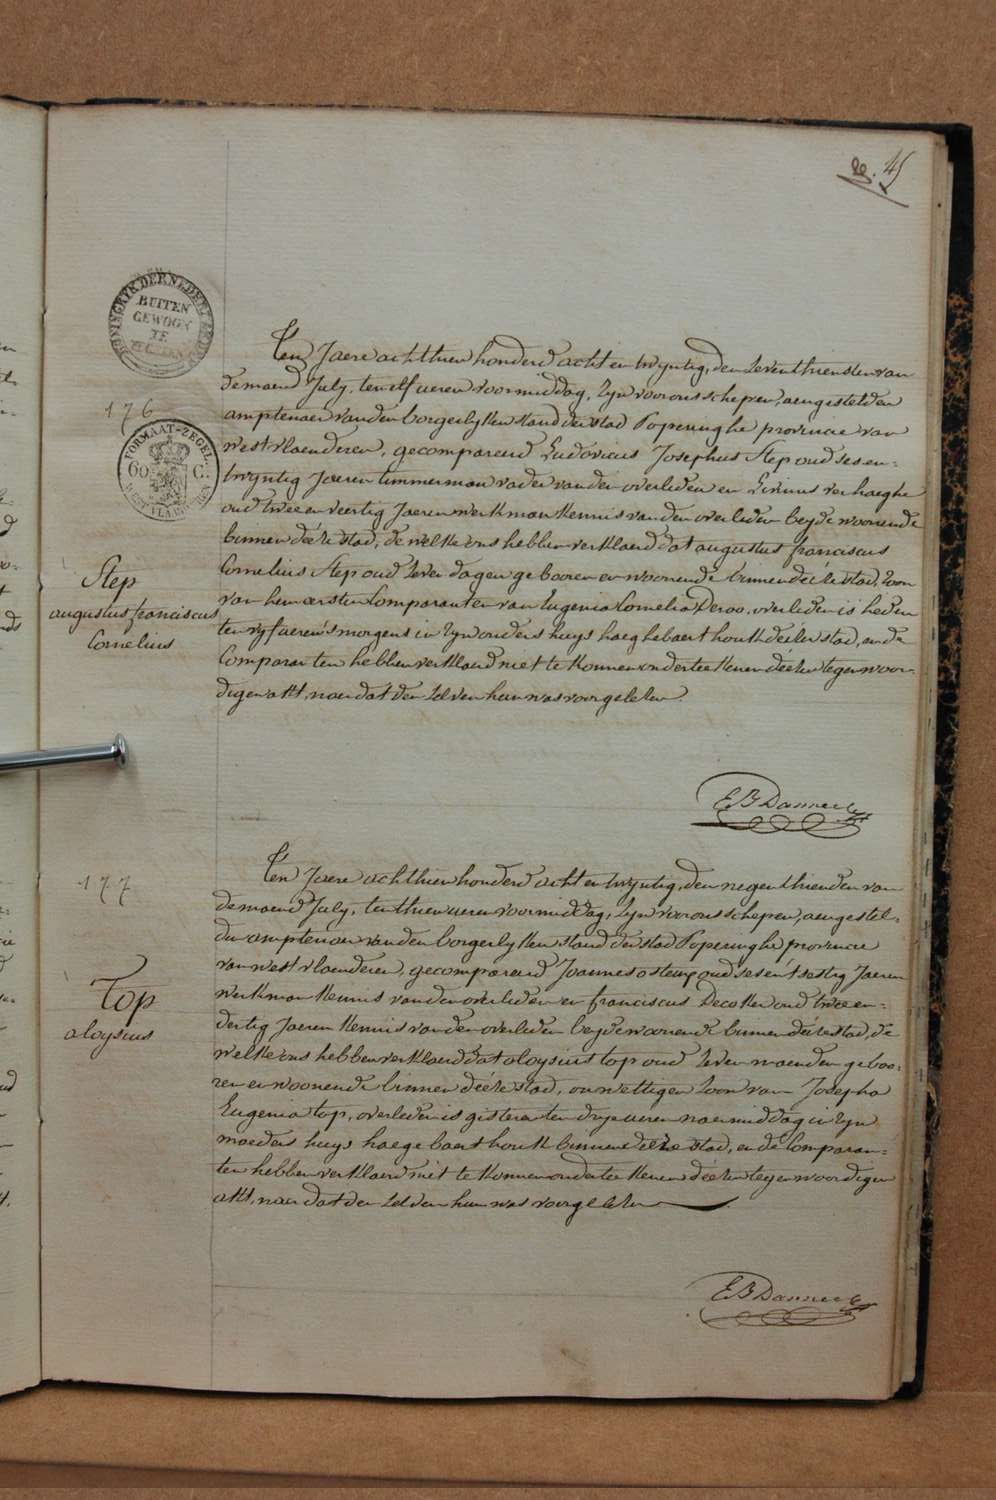 45
KONINGRYK DER NEDERLANDEN
BUITEN
GEWOON
TE
176
FORMAAT-ZEGEL
60 C.
WESTVLAENDEREN
Step
augustus franciscus
Cornelius
Ten Jaere achthien honderd acht en twyntig, den zeventhiensten van
de maend July, ten elf ueren voormiddag, zyn voor ons schepen, aengestelden
amptenaer van den borgerlyken stand der stad Poperinghe provincie van
westvlaenderen, gecompareerd Ludovicus Josephus Step oud ses en=
twyntig Jaeren timmerman vader van den overleden en Livinus verhaeghe
oud twee en veertig Jaeren werkman kennis van den overleden beyde woonende
binnen déeze stad, de welke ons hebben verklaerd dat augustus franciscus
Cornelius Step oud zeven dagen gebooren en woonende binnen déeze stad, zoon
van hem eersten Comparant en van Eugenia Cornelia Deroo, overleden is heden
ten vyf ueren 's morgens in zyn ouders huys haeghebaert houk deézer stad, en de
Comparanten hebben verklaerd niet te konnen onderteekenen déezen tegenwoor-
digen akt, naer dat den zelven hun was voorgelezen.
E B Danneel
177
Top
aloysius
Ten Jaere achthien honderd acht en twyntig, den negenthienden van
de maend July, ten thien ueren voormiddag, zyn voor ons schepen, aengestel=
den amptenaer van den borgerlyken stand der stad Poperinghe provincie
van westvlaenderen, gecompareerd Joannes ostenp oud ses en t'sestig Jaeren
werkman kennis van den overleden en franciscus Decoker oud twee en=
dertig Jaeren kennis van den overleden beyde woonende binnen déeze stad, de
welke ons hebben verklaerd dat aloysius top oud zeven maenden geboo=
ren en woonende binnen déeze stad, onwettigen zoon van Josepha
Eugenia top, overleden is gisteren ten dry ueren naermiddag in zyn
moeders huys haegebaert houk binnen déeze stad, en de Comparan=
ten hebben verklaerd niet te konnen onderteekenen déezen tegenwoordigen
akt, naer dat den zelven hun was voorgelezen
E B Danneel